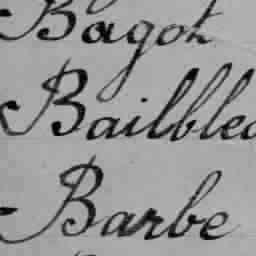 Bagot
Bailbled
Barbe